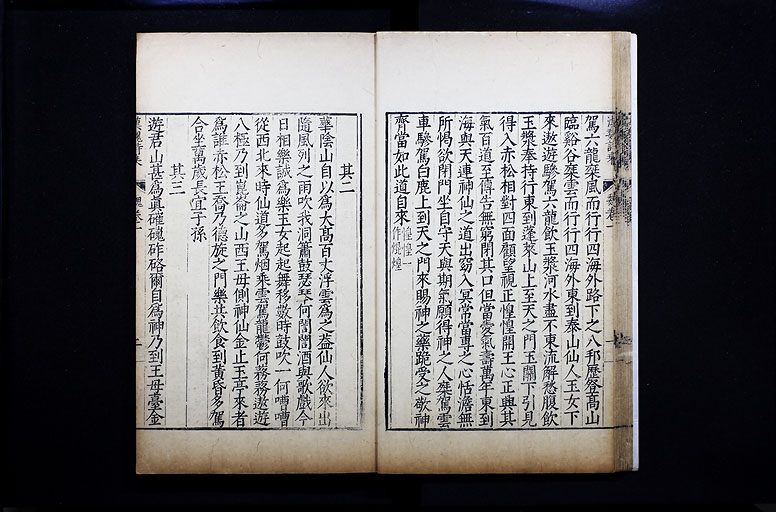 駕六龍乘風而行行四海外路下之八邦歷登高山
臨谿谷乘雲而行行四海外東到泰山仙人玉女下
來遨遊驂駕六龍飲玉漿河水盡不東流解愁腹飲
玉漿奉持行東到蓬萊山上至天之門玉闕下引見
得入赤松相對四面顧望視正惶惶開王心正興其
氣百道至傳告無窮閉其口但當愛氣壽萬年東到
海與天連神仙之道出窈入冥常當專之心恬澹無
所愒欲閉門坐自守天與期氣願得神之人乘駕雲
車驂駕白鹿上到天之門來賜神之藥跪受之敬神
齊當如此道自來惶惶一作焜煌
其二
華陰山自以為大高百丈浮雲為之蓋仙人欲來出
隨風列之雨吹我洞簫鼓瑟琴何誾誾酒與歌戲今
日相樂誠為樂玉女起起舞移數時鼓吹一何嘈嘈
從西北來時仙道多駕烟乘雲駕龍鬱何蓩蓩遨遊
八極乃到崑崙之山西王母側神仙金止玉亭來者
為誰赤松王喬乃德旋之門樂共飲食到黃昏多駕
合坐萬歲長宜子孫
其三
遊君山甚為真確磈砟硌爾自為神乃到王母臺金